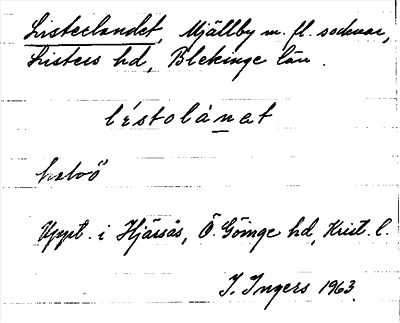 Listerlandet, Mjällby m. fl. socknar,
Listers hd, Blekinge län.
léstolánat
halvö
Uppt. i Hjärsås, Ö. Göinge hd, Krist. l.
I. Ingers 1963.